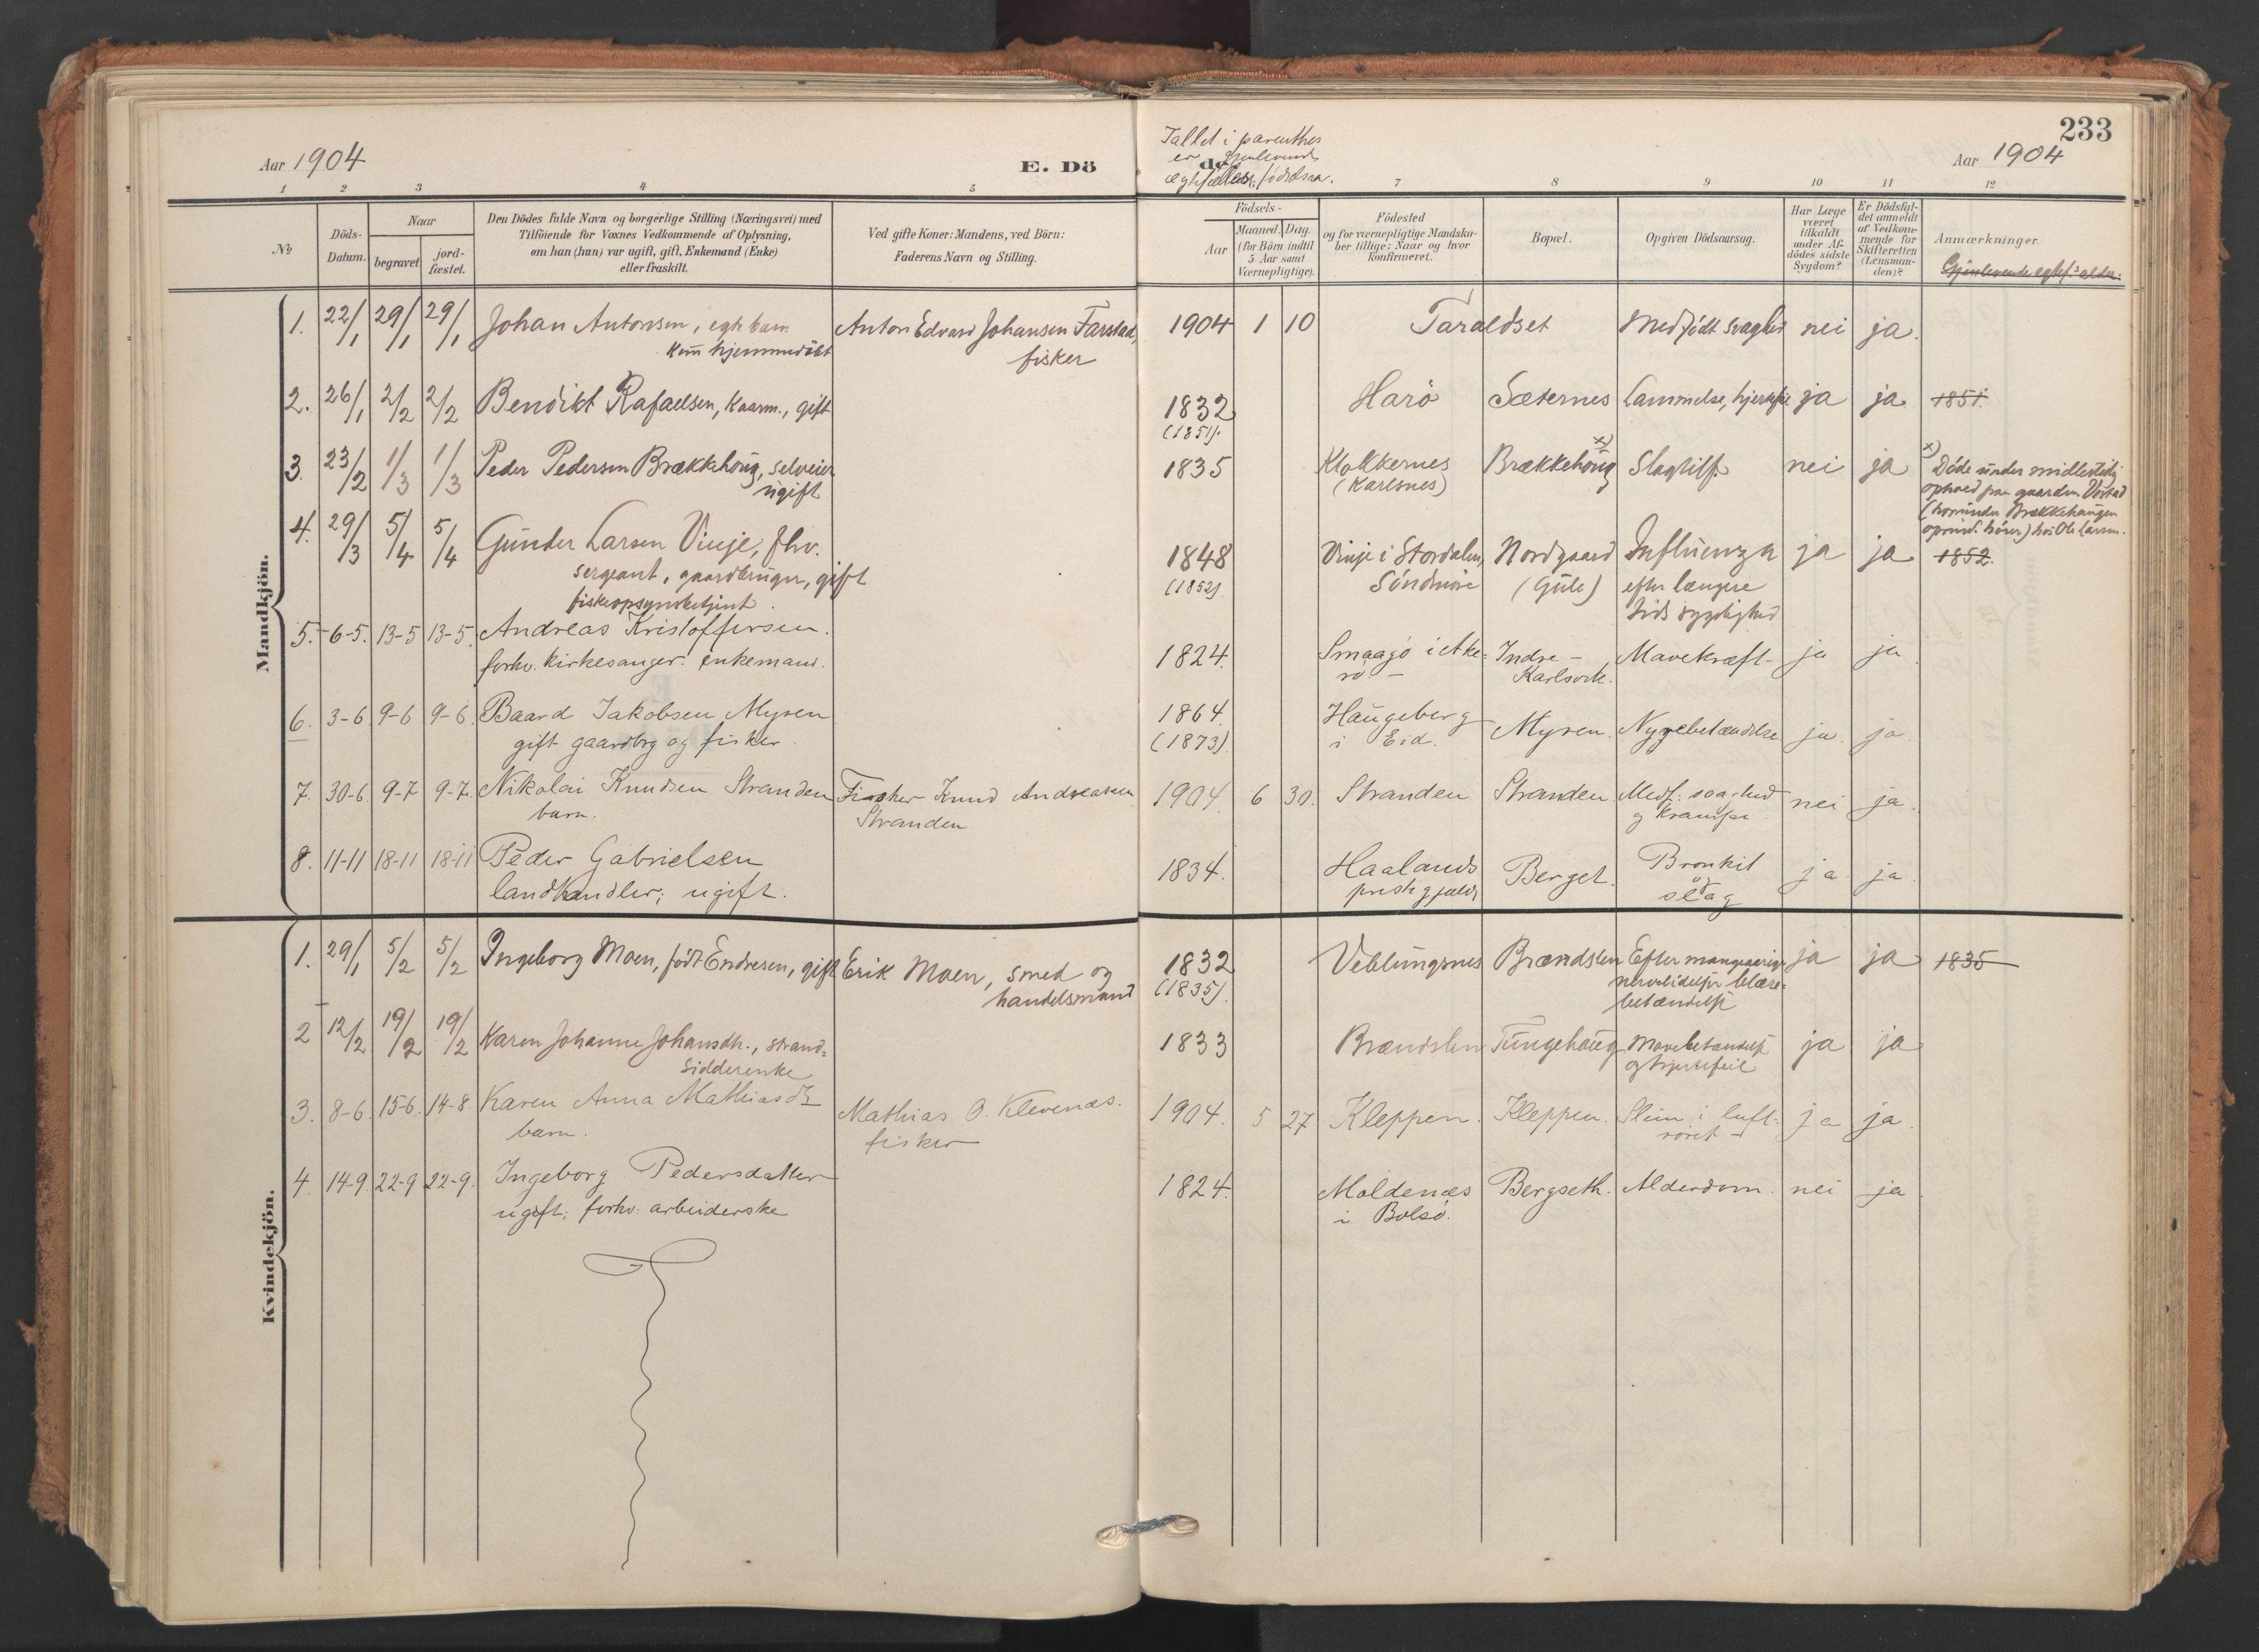 Aar 1904
E. Dö
Tallet i parenthes
er gjenlevende
de.
egtefælles födselsaar.
233
Aar 1904
1 2 3 4 5 7 8 9 10 11 12
No
Döds-
Datum.
Naar
begravet.
jord-
fæstet.
Den Dödes fulde Navn og borgerlige Stilling (Næringsvei) med
Tilföiende for Voxnes Vedkommende af Oplysning,
om han (hun) var ugift, gift, Enkemand (Enke)
eller fraskilt.
Ved gifte Koner: Mandens, ved Börn:
Faderens Navn og Stilling.
Födsels-
Aar
Maaned. Dag.
(for Börn indtil
5 Aar samt
Værnepligtige).
Födested
og for værnepligtige Mandska-
ber tillige: Naar og hvor
konfirmeret.
Bopæl.
Opgiven Dödsaarsag.
Har Læge
været
tilkaldt
under Af-
dödes sidste
Sygdom?
Er Dödsfal-
det anmeldt
af Vedkom-
mende for
Skifteretten
(Lensman-
den)?
Anmærkninger.
Gjenlevende egtef.s alder.
Mandkjön.
1. 22/1 29/1 29/1 Johan Antonsen, egte barn Anton Edvard Johansen Farstad, 1904 1 10 Taraldset Medfödt svaghed nei ja.
kun hjemmedöbt fisker
2. 26/1 2/2 2/2 Bendikt Rafaelsen, kaarm., gift 1832 Harö Sæternes Lammelse, hjertefe ja ja 1851.
(1851).
3. 23/2 1/3 1/3 Peder Pedersen Brækkehoug, selveier 1835 Klokkernes Brækkehoug x) Slagtilf. nei ja x) Döde under midlertidig
ugift (Karlsnes) ophold paa gaarden Vestad
(hvorunder Brækkehaugen
oprind. hörer) hos Ole Larsen.
4. 29/3 5/4 5/4 Gunder Larsen Vinje, fhv. 1848 Vinje i Stordalen, Nordgaard Influenza ja ja 1852.
sergeant, gaardbruger, gift (1852). Söndmöre (Gule) efter længere
fiskeopsynsbetjent. tids sygelighed
5. 6-5. 13-5 13-5. Andreas Kristoffersen. 1824. Smaagö i Ake- Indre- Mavekræft- ja ja
forhv. kirkesanger: enkemand. rö.- Karlsvik.
6. 3-6 9-6 9-6. Baard Jakobsen Myren 1864. Haugeberg Myren. Nyrebetændelse ja. ja.
gift gaardbrg og fisker. (1873). i Eid.
7. 30-6 9-7 9-7. Nikolai Knudsen Stranden Fisker Knud Andreasen 1904. 6 30. Stranden Stranden. Medf: svaghed nei ja.
barn. Stranden og krampe.
8. 11-11 18-11 18-11 Peder Gabrielsen 1834. Haalands Berget. Bronkit ja. ja.
landhandler; ugift. prestegjæld og
slag
Kvindekjön.
1. 29/1 5/2 5/2 Ingeborg Moen, födt Endresen, gift Erik Moen, smed og 1832 Veblungsnes Brændslen Efter mangeaarige ja ja 1835
handelsmand (1835). nervelidelser blære-
betændelse
2 12/2 19/2 19/2 Karen Johanne Johansdtr., strand- 1833 Brændslen Tungehoug Mavebetændelse ja ja
sidderenke og hjertefeil
3. 8-6. 15-6. 14-8. Karen Anna Mathiasdtr Mathias O. Klevenæs. 1904. 5 27 Kleppen. Kleppen. Slim i luft- ja ja.
barn. fisker röret -
4. 14-9. 22-9 22-9. Ingeborg Pedersdatter 1824. Moldenæs Bergseth. Alderdom. nei ja
ugift; forhv: arbeiderske i Bolsö.